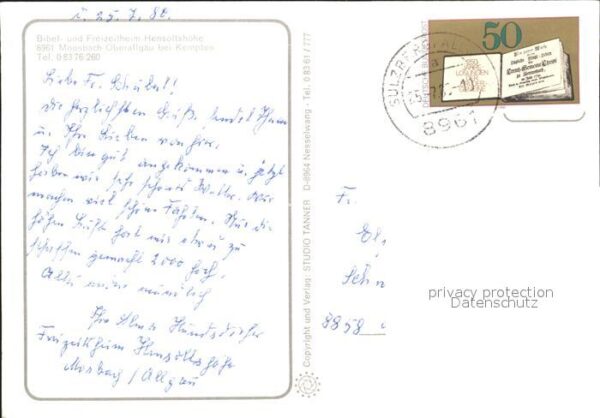 d. 25.7.80.
Bibel- und Freizeitheim Hensoltshöhe
8961 Moosbach Oberallgäu bei Kempten
Tel. 0 83 76 260
Liebe Fr. Schubel!
die herzlichsten Grüße sendet Ihnen
u. Ihre Lieben von hier.
Ich bin gut angekommen u. jetzt
haben wir sehr schönes Wetter. Wir
machen viel schöne Fahrten. Nur die
höhen Luft hat mir etwas zu
schaffen gemacht 2000 hoch,
Alles weitere mündlich
Ihre Alma
Freizeitheim Hensoltshöhe
Mosbach / Allgäu
Copyright und Verlag: STUDIO TANNER D-8964 Nesselwang - Tel. 0 83 61 / 777
DEUTSCHE BUNDESPOST
50
SULZBERG, ALLGÄU
8961
Fr.
8858
privacy protection
Datenschutz